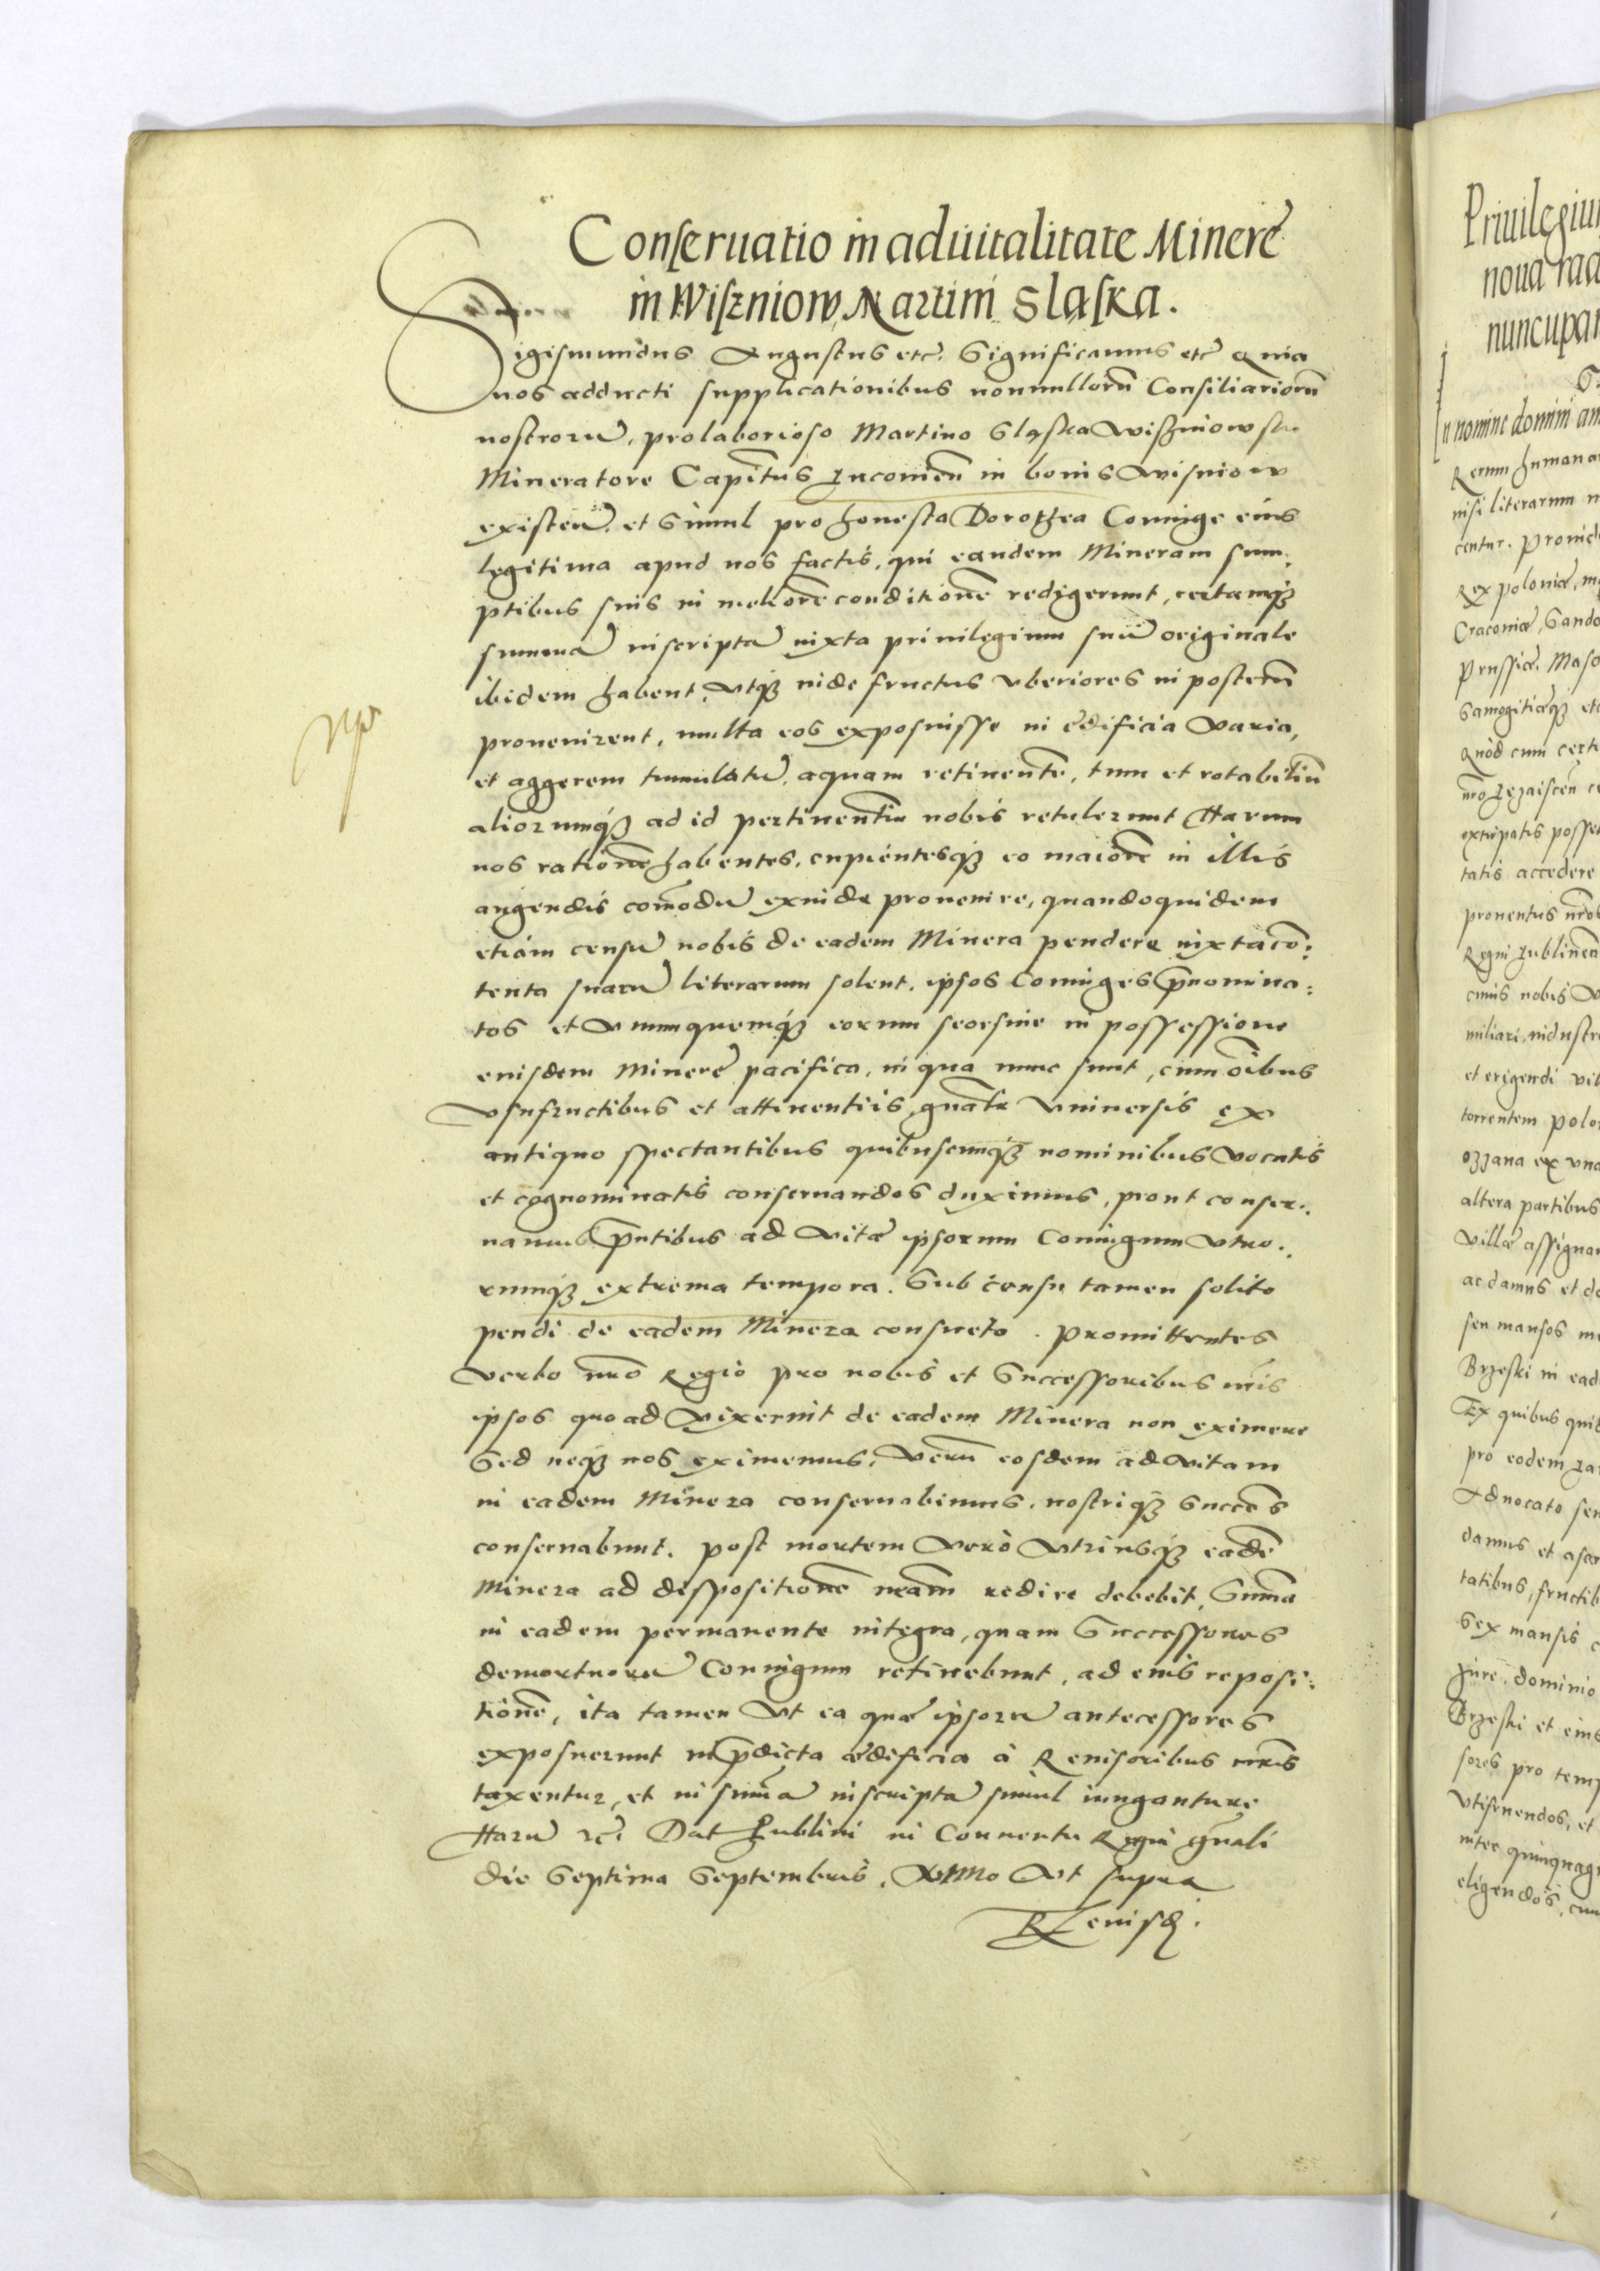 Conseruatio in aduitalitate Minere
in Wiszniow Martini Sląska.
Sigismundus Augustus etc̃. Significamus etc̃ Quia
nos adducti supplicationibus nonnullorũ Consiliariorũ
nostrorũ, pro laborioso Martino Sląska Wiszniowski
Mineratore Capẽtus in bonis Wisniow
existeñ. et Simul pro honesta Dorothea Coniuge eius
legitima apud nos factis, qui eandem Mineram sum:
ptibus suis in meliorẽ conditionẽ redigerunt, certamqȝ
summã inscriptã iuxta priuilegium suũ originale
ibidem habent, Vtqȝ inde fructus vberiores in posterũ
prouenirent, multa eos exposuisse in ędificia Varia,
et aggerem tumulatũ, aquam retinentẽ, tum et rotabiliũ
aliorumqȝ ad id pertinentiũ nobis retulerunt Harum
nos rationẽ habentes, cupientesqȝ eo maiorẽ in illis
augendis com̃odũ exinde prouenire, quandoquidem
etiam censũ nobis de eadem Minera pendere iuxta cõ:
tenta suarũ literarum solent, ipsos Coniuges p̃nomina:
tos et Vnumquemqȝ eorum seorsiue in possessione
eiusdem Minerę pacifica, in qua nunc sunt, cum õibus
Vsufructibus et attinentiis gñalr Vniuersis ex
antiquo spectantibus quibuscumqȝ nominibus Vocatis
et cognominatis conseruandos duximus, prout conser:
uamus p̃ntibus ad Vitæ ipsorum Coniugum Vtro:
rumqȝ extrema tempora. Sub censu tamen solito
pendi de eadem Minera consueto. Promittentes
Verbo nr̃o Regio pro nobis et Successoribus nr̃is
ipsos quoad Vixerint de eadem Minera non eximere
Sed neqȝ nos eximemus, Verũ eosdem ad Vitam
in eadem Minera conseruabimus, nostriqȝ Succẽs
conseruabunt. post mortem Vero Vtriusqȝ eadẽ
Minera ad dispositionẽ nr̃am redire debebit, Sum̃a
in eadem permanente integra, quam Successores
demortuorũ Coniugum retinebunt, ad eius reposi:
tionẽ, ita tamen Vt ea quæ ipsorũ antecessores
exposuerunt in p̃dicta ædificia à Reuisoribus nr̃is
taxentur, et in sum̃ã inscriptã simul iungantur
Harũ rc̃. Dat Lublini in Conuentu Regni gñali
die Septima Septembris. Anno Vt supra
Priuilegiu
noua rad
nuncupar
In nomine domini am
Rerum humanar
nisi literarum
centur. Prouid
Rex poloniæ, m
Cracouiæ, Sando
Prussiæ, Maso
Samogitiæqȝ etc
Quod cum certi
extirpatis posse
tatis accedere
prouentus nr̃o
cuius nobis
miliari, industri
et erigendi vil
torrentem Polo
altera partibus
Villæ assignar
ac damus et do
seu mansos
Brzeski in ead
Ex quibus quid
pro eodem
Aduocato seu
damus et ascr
tatibus, fructib
Sex mansis
Jure, dominio
Brzeski et eius
sores pro temp
Vtifruendos, et
inter quinquag
eligendos, cum